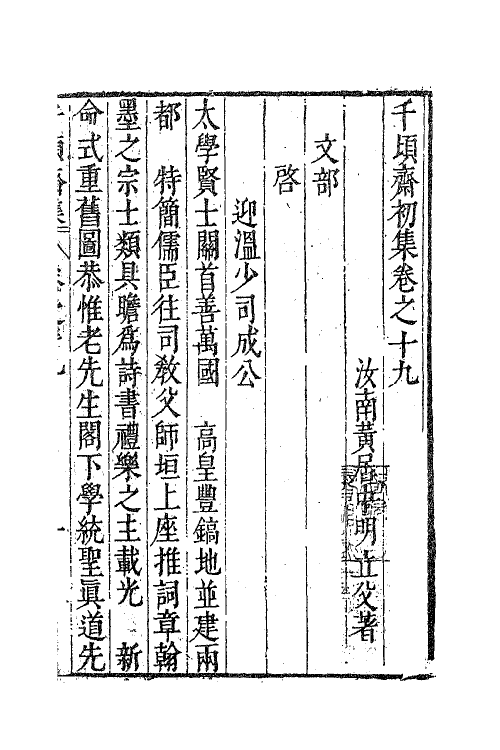 千頃齋初集卷之十九
汝南黃居中明立父著
文部
啓
迎溫少司成公
太學賢士關首善萬國　高皇豐鎬地並建兩
都　特簡儒臣往司教父師垣上座推詞章翰
墨之宗士類具瞻爲詩書禮樂之主載光　新
命式重舊圖恭惟老先生閣下學統聖眞道先
千頃齋集　卷之十九　一